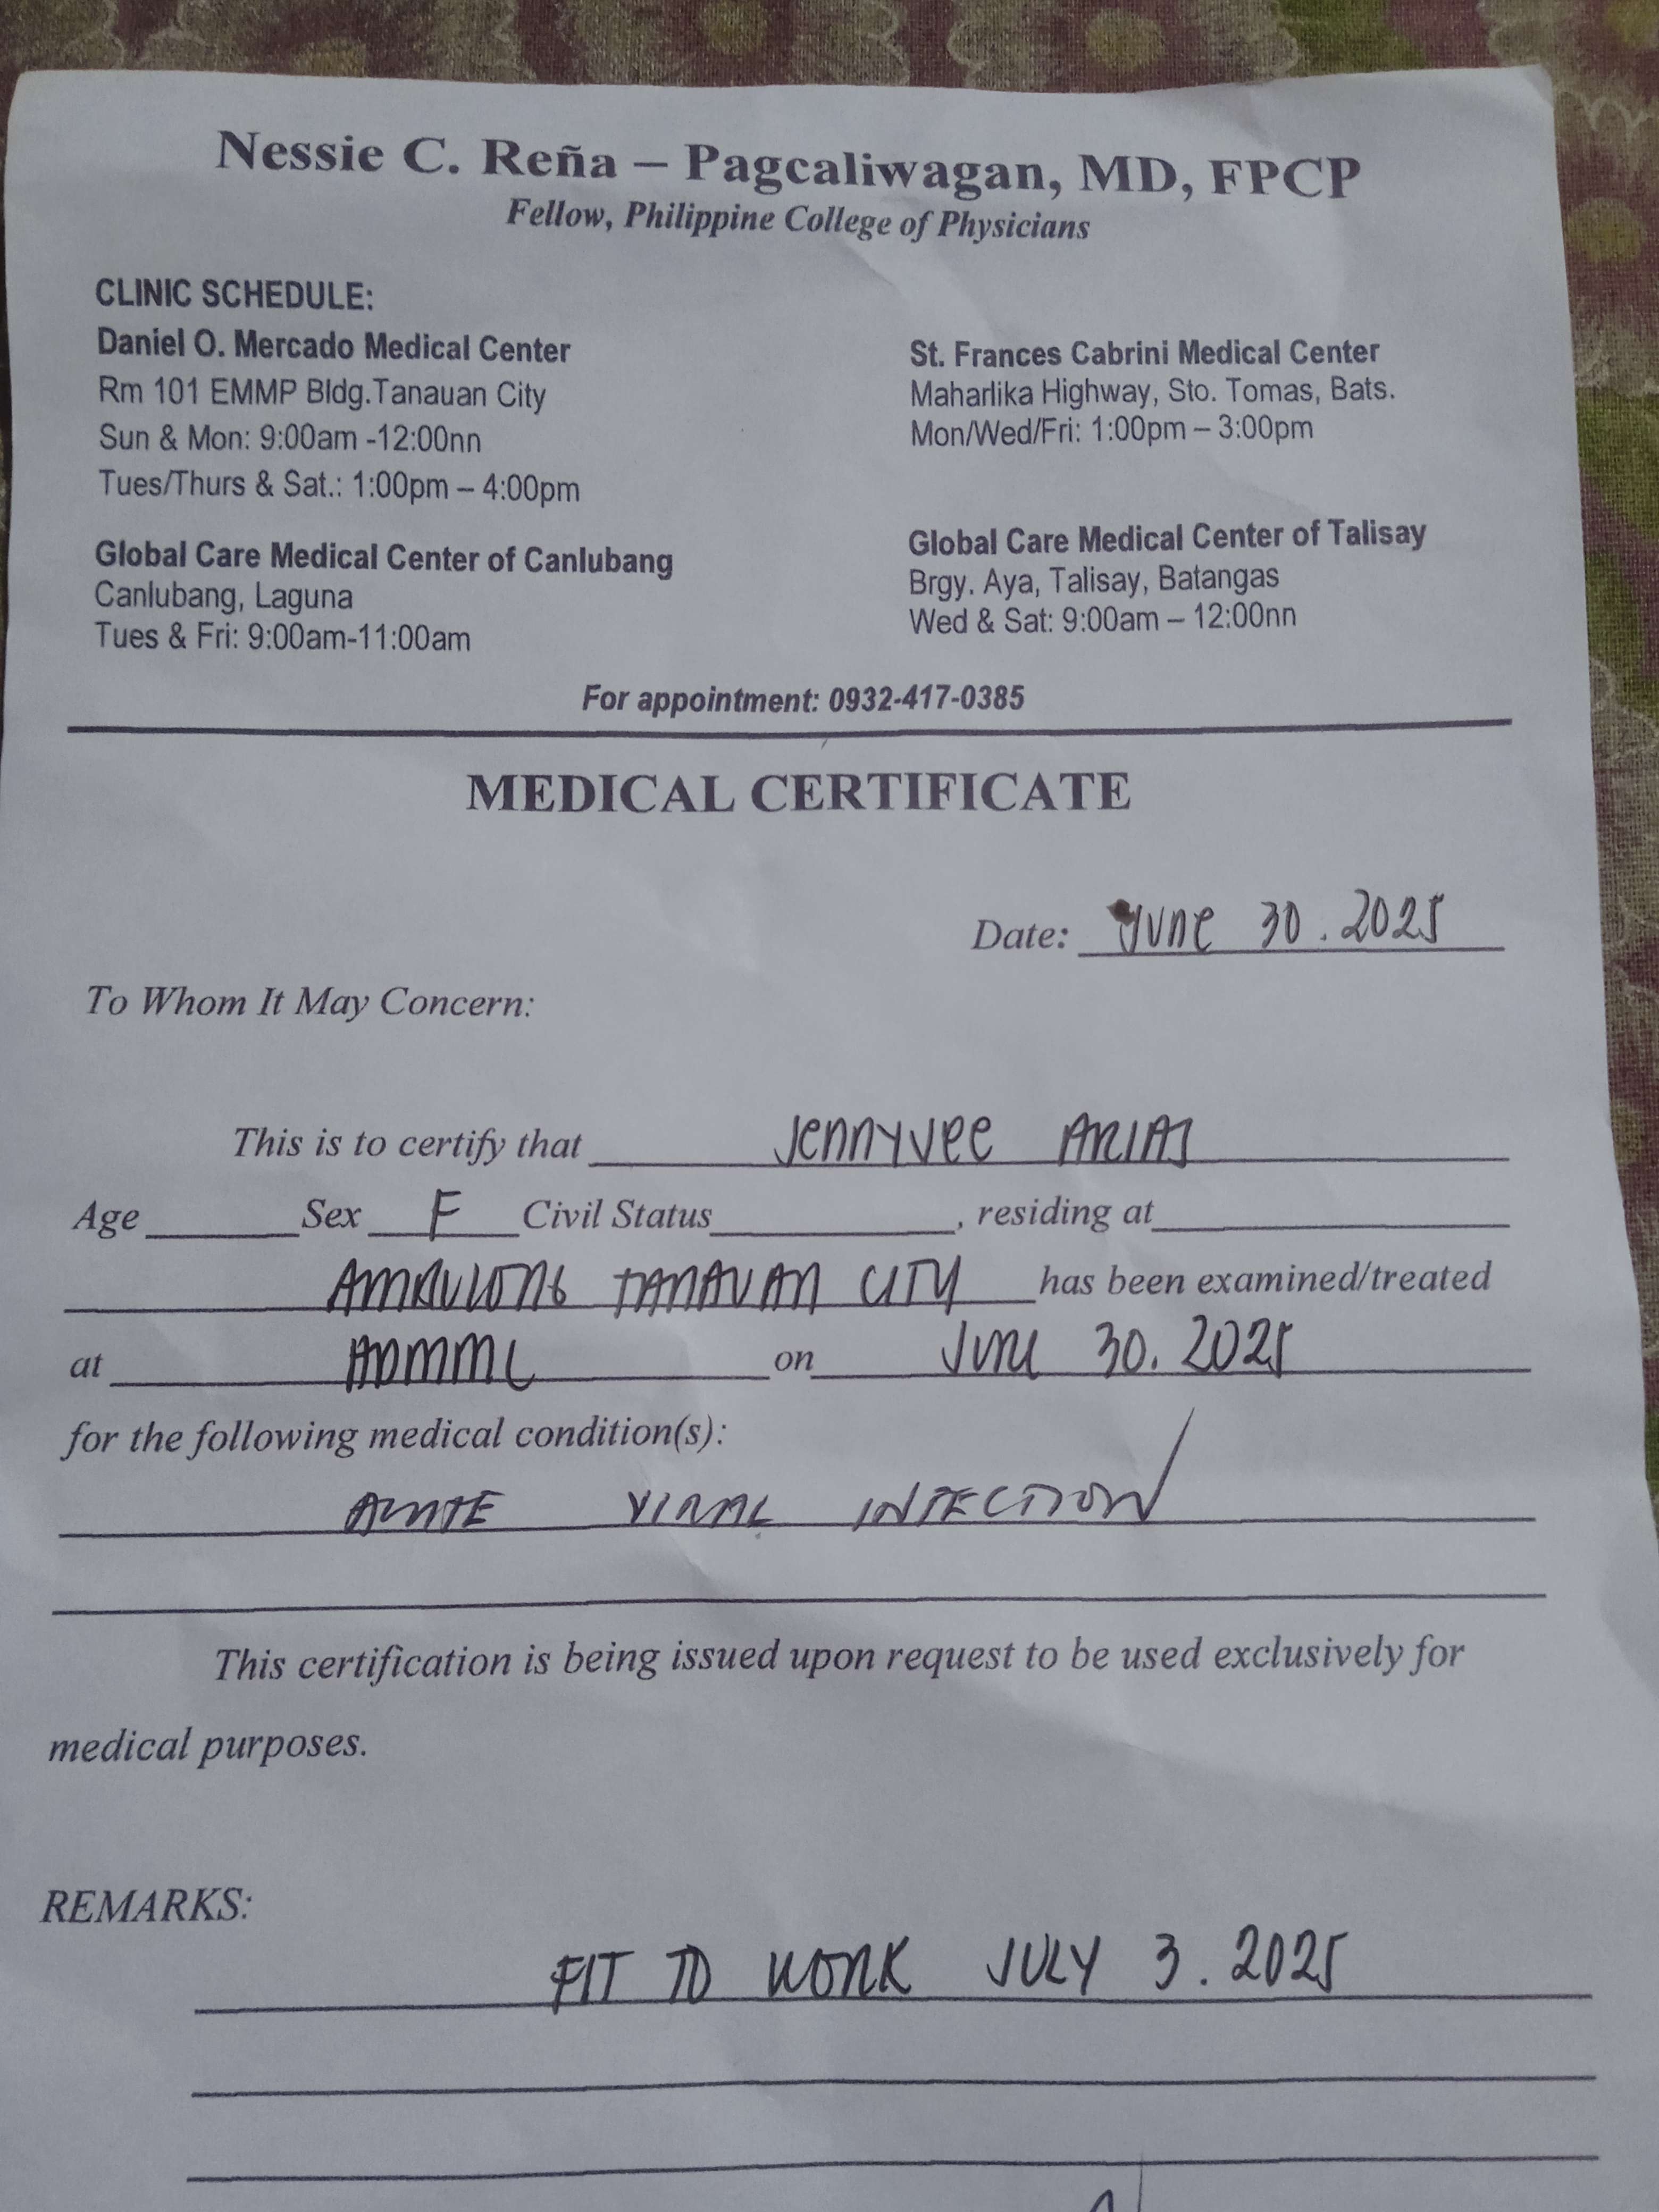 Nessie C. Reña – Pagcaliwagan, MD, FPCP
Fellow, Philippine College of Physicians
CLINIC SCHEDULE:
Daniel O. Mercado Medical Center
Rm 101 EMMP Bldg.Tanauan City
Sun & Mon: 9:00am -12:00nn
Tues/Thurs & Sat.: 1:00pm – 4:00pm
St. Frances Cabrini Medical Center
Maharlika Highway, Sto. Tomas, Bats.
Mon/Wed/Fri: 1:00pm – 3:00pm
Global Care Medical Center of Canlubang
Canlubang, Laguna
Tues & Fri: 9:00am-11:00am
Global Care Medical Center of Talisay
Brgy. Aya, Talisay, Batangas
Wed & Sat: 9:00am – 12:00nn
For appointment: 0932-417-0385
MEDICAL CERTIFICATE
Date: June 30. 2025
To Whom It May Concern:
This is to certify that Jennyvee ARIAS
Age Sex F Civil Status , residing at
TANAUAN CITY has been examined/treated
at on June 30. 2025
for the following medical condition(s):
ACUTE VIRAL INFECTION
This certification is being issued upon request to be used exclusively for
medical purposes.
REMARKS:
FIT TO WORK JULY 3. 2025